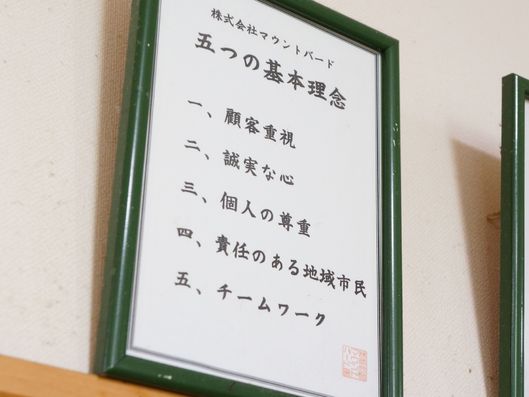 株式会社マウントバード
五つの基本理念
一、顧客重視
二、誠実な心
三、個人の尊重
四、責任のある地域市民
五、チームワーク